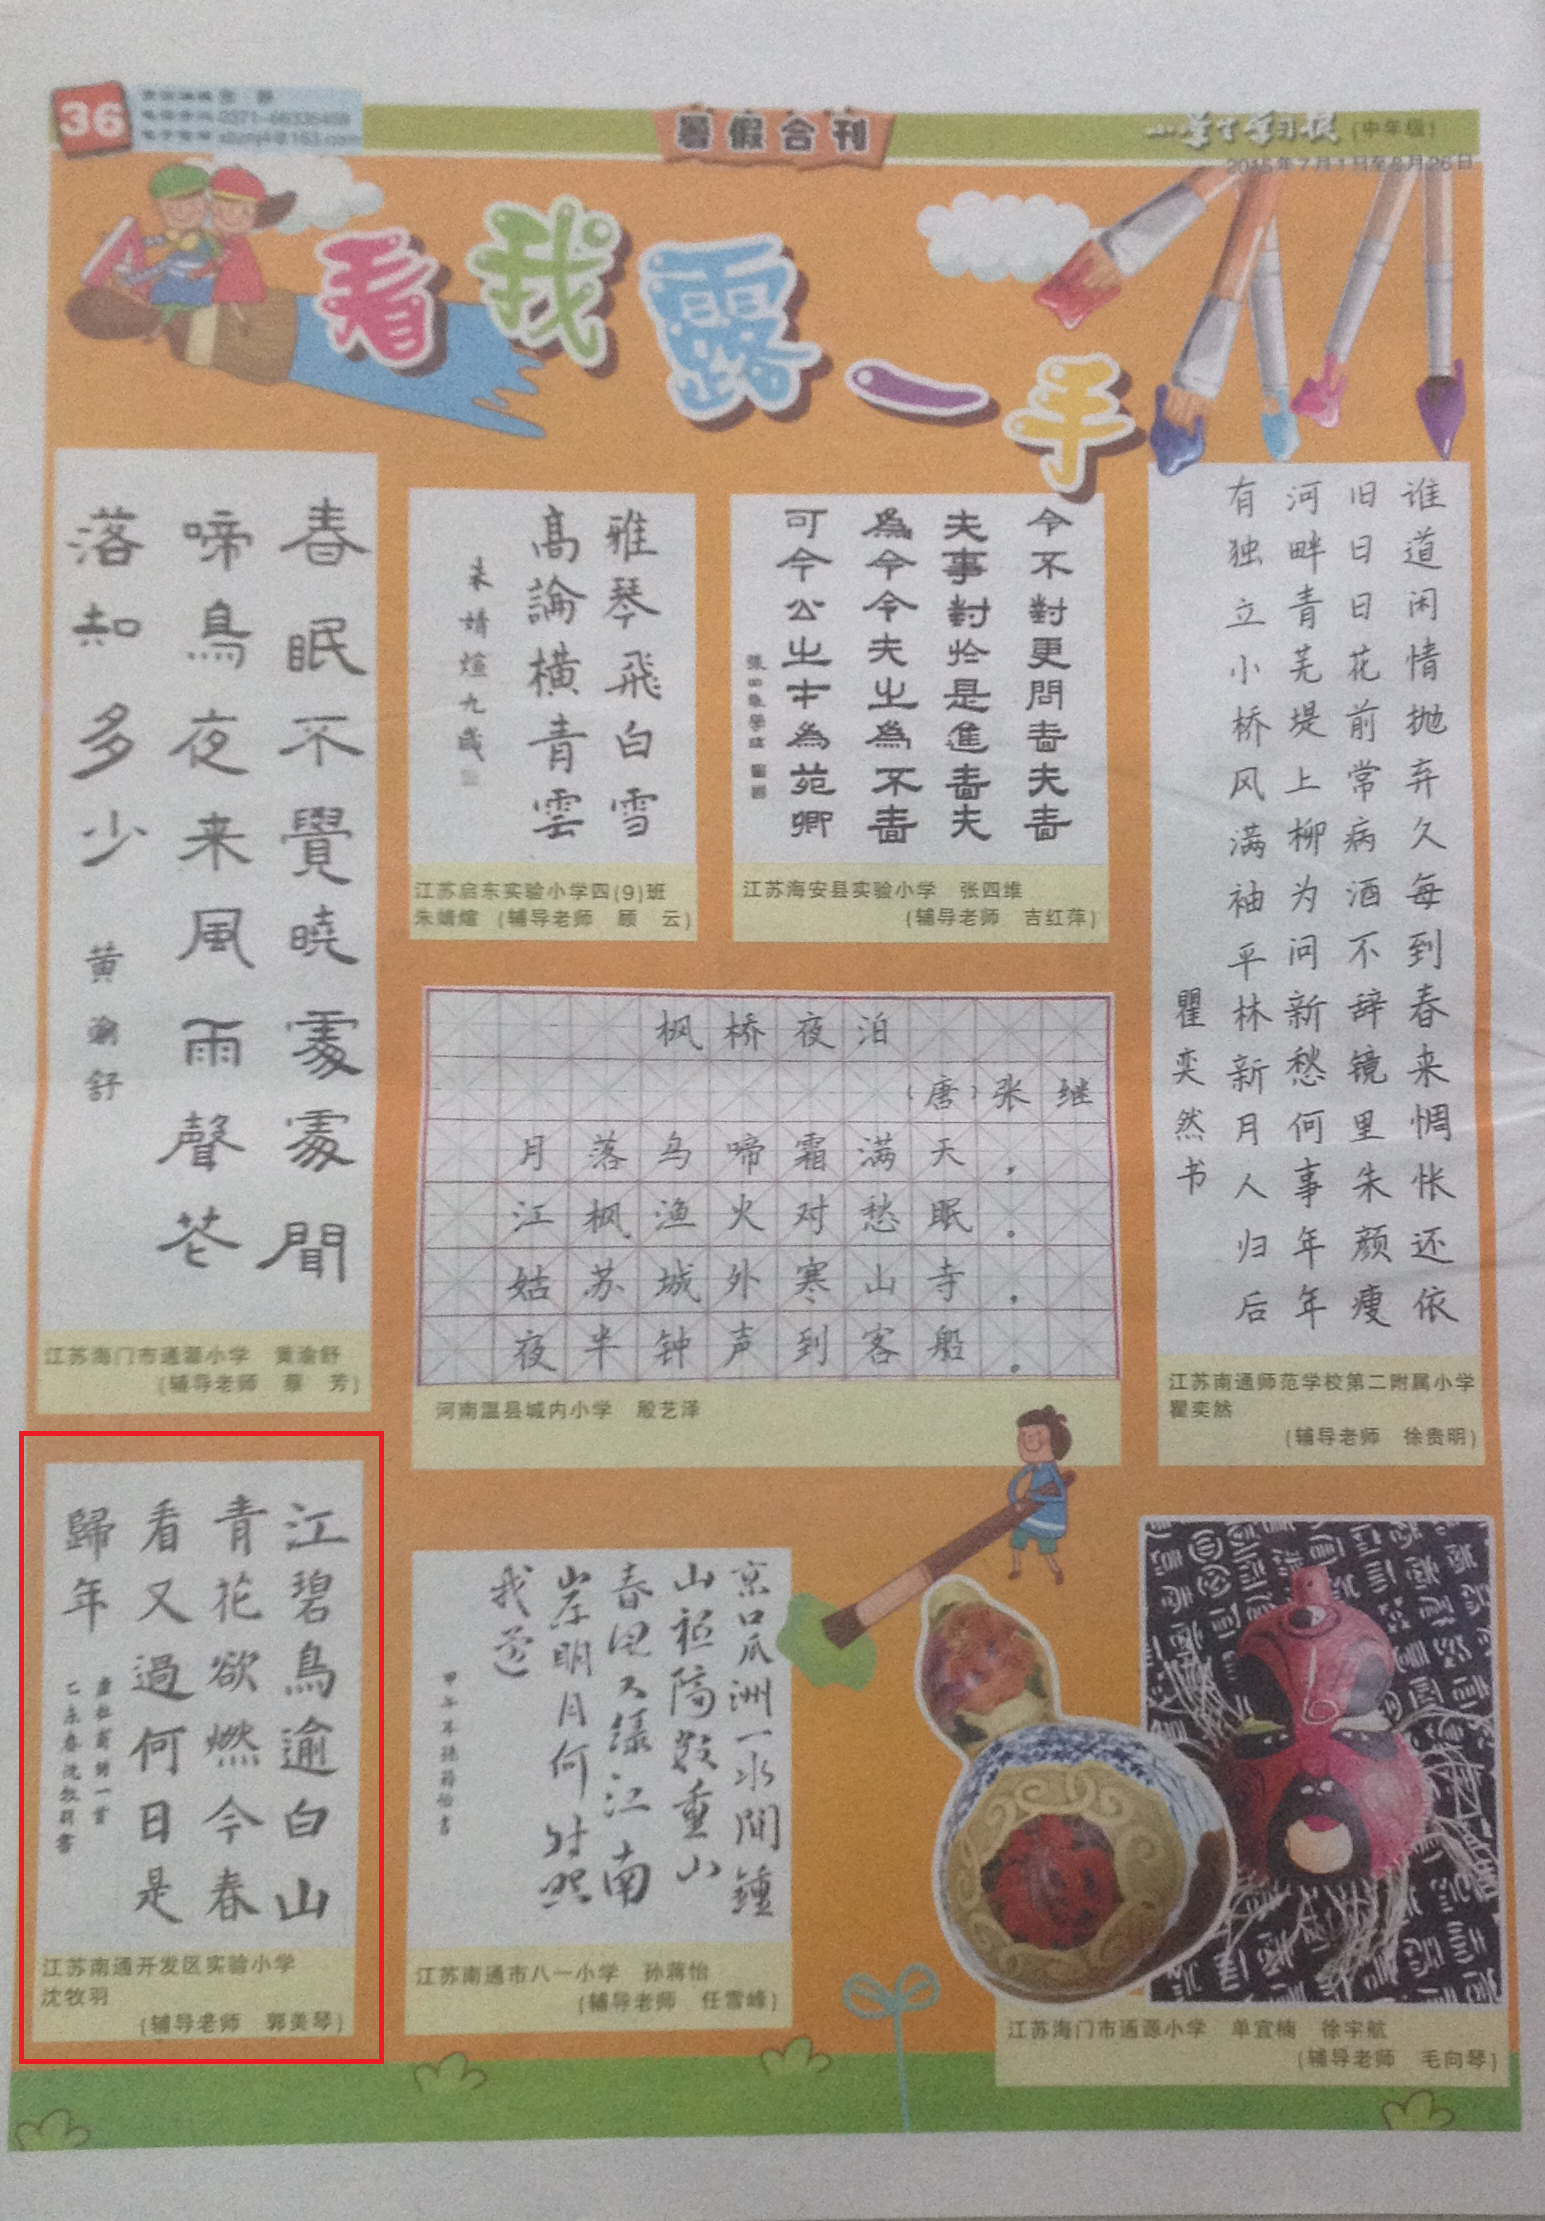 36
暑假合刊
小学生学习报
(中年级)
2015年7月1日至8月26日
看我露一手
春眠不覺曉處處聞
啼鳥夜来風雨聲花
落知多少
黄渝舒
江苏海门市通源小学 黄渝舒
(辅导老师 蔡 芳)
雅琴飛白雪
高論横青雲
朱婧煊九歲
江苏启东实验小学四(9)班
朱婧煊 (辅导老师 顾 云)
令不對更問嗇夫嗇
夫事對於是進嗇夫
為令令夫之為不嗇
可令公之中為苑卿
江苏海安县实验小学 张四维
(辅导老师 吉红萍)
谁道闲情抛弃久每到春来惆怅还依
旧日日花前常病酒不辞镜里朱颜瘦
河畔青芜堤上柳为问新愁何事年年
有独立小桥风满袖平林新月人归后
瞿奕然书
江苏南通师范学校第二附属小学
瞿奕然
(辅导老师 徐贵明)
枫桥夜泊
(唐)张继
月落乌啼霜满天，
江枫渔火对愁眠。
姑苏城外寒山寺，
夜半钟声到客船。
河南温县城内小学 殷艺泽
江碧鳥逾白山
青花欲燃今春
看又過何日是
歸年
唐杜甫诗一首
乙未春沈牧羽書
江苏南通开发区实验小学
沈牧羽
(辅导老师 郭美琴)
京口瓜洲一水間鍾
山祗隔数重山
春風又綠江南
岸明月何时照
我還
甲午年孫蒋怡書
江苏南通市八一小学 孙蒋怡
(辅导老师 任雪峰)
江苏海门市通源小学 单宜楠 徐宇航
(辅导老师 毛向琴)